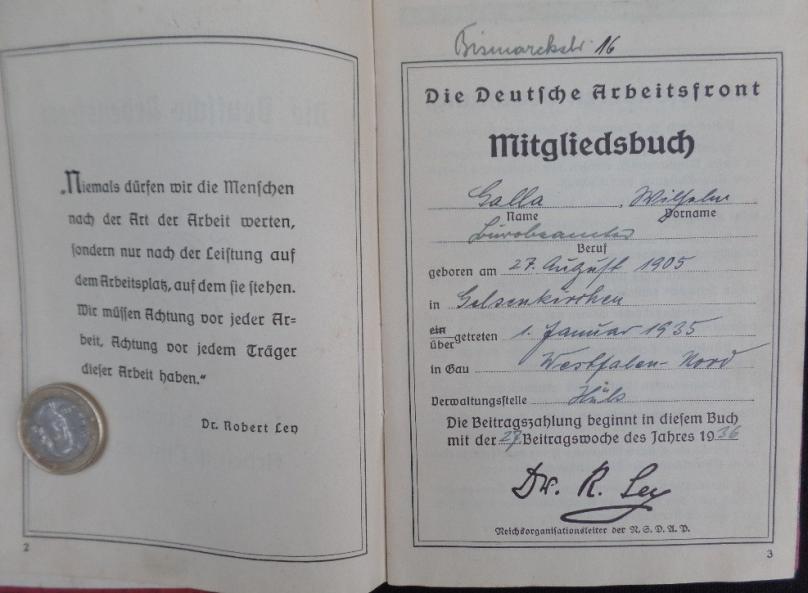 „Niemals dürfen wir die Menschen
nach der Art der Arbeit werten,
sondern nur nach der Leistung auf
dem Arbeitsplatz, auf dem sie stehen.
Wir müssen Achtung vor jeder Ar=
beit, Achtung vor jedem Träger
dieser Arbeit haben.“
Dr. Robert Ley
2
Bismarckstr 16
Die Deutsche Arbeitsfront
Mitgliedsbuch
Galla, Wilhelm
Name Vorname
Bürobeamter
Beruf
geboren am 27. August 1905
in Gelsenkirchen
ein
übergetreten 1. Januar 1935
in Gau Westfalen-Nord
Verwaltungsstelle Hüls
Die Beitragszahlung beginnt in diesem Buch
mit der 27. Beitragswoche des Jahres 1936
Dr. R. Ley
Reichsorganisationsleiter der N.S.D.A.P.
3